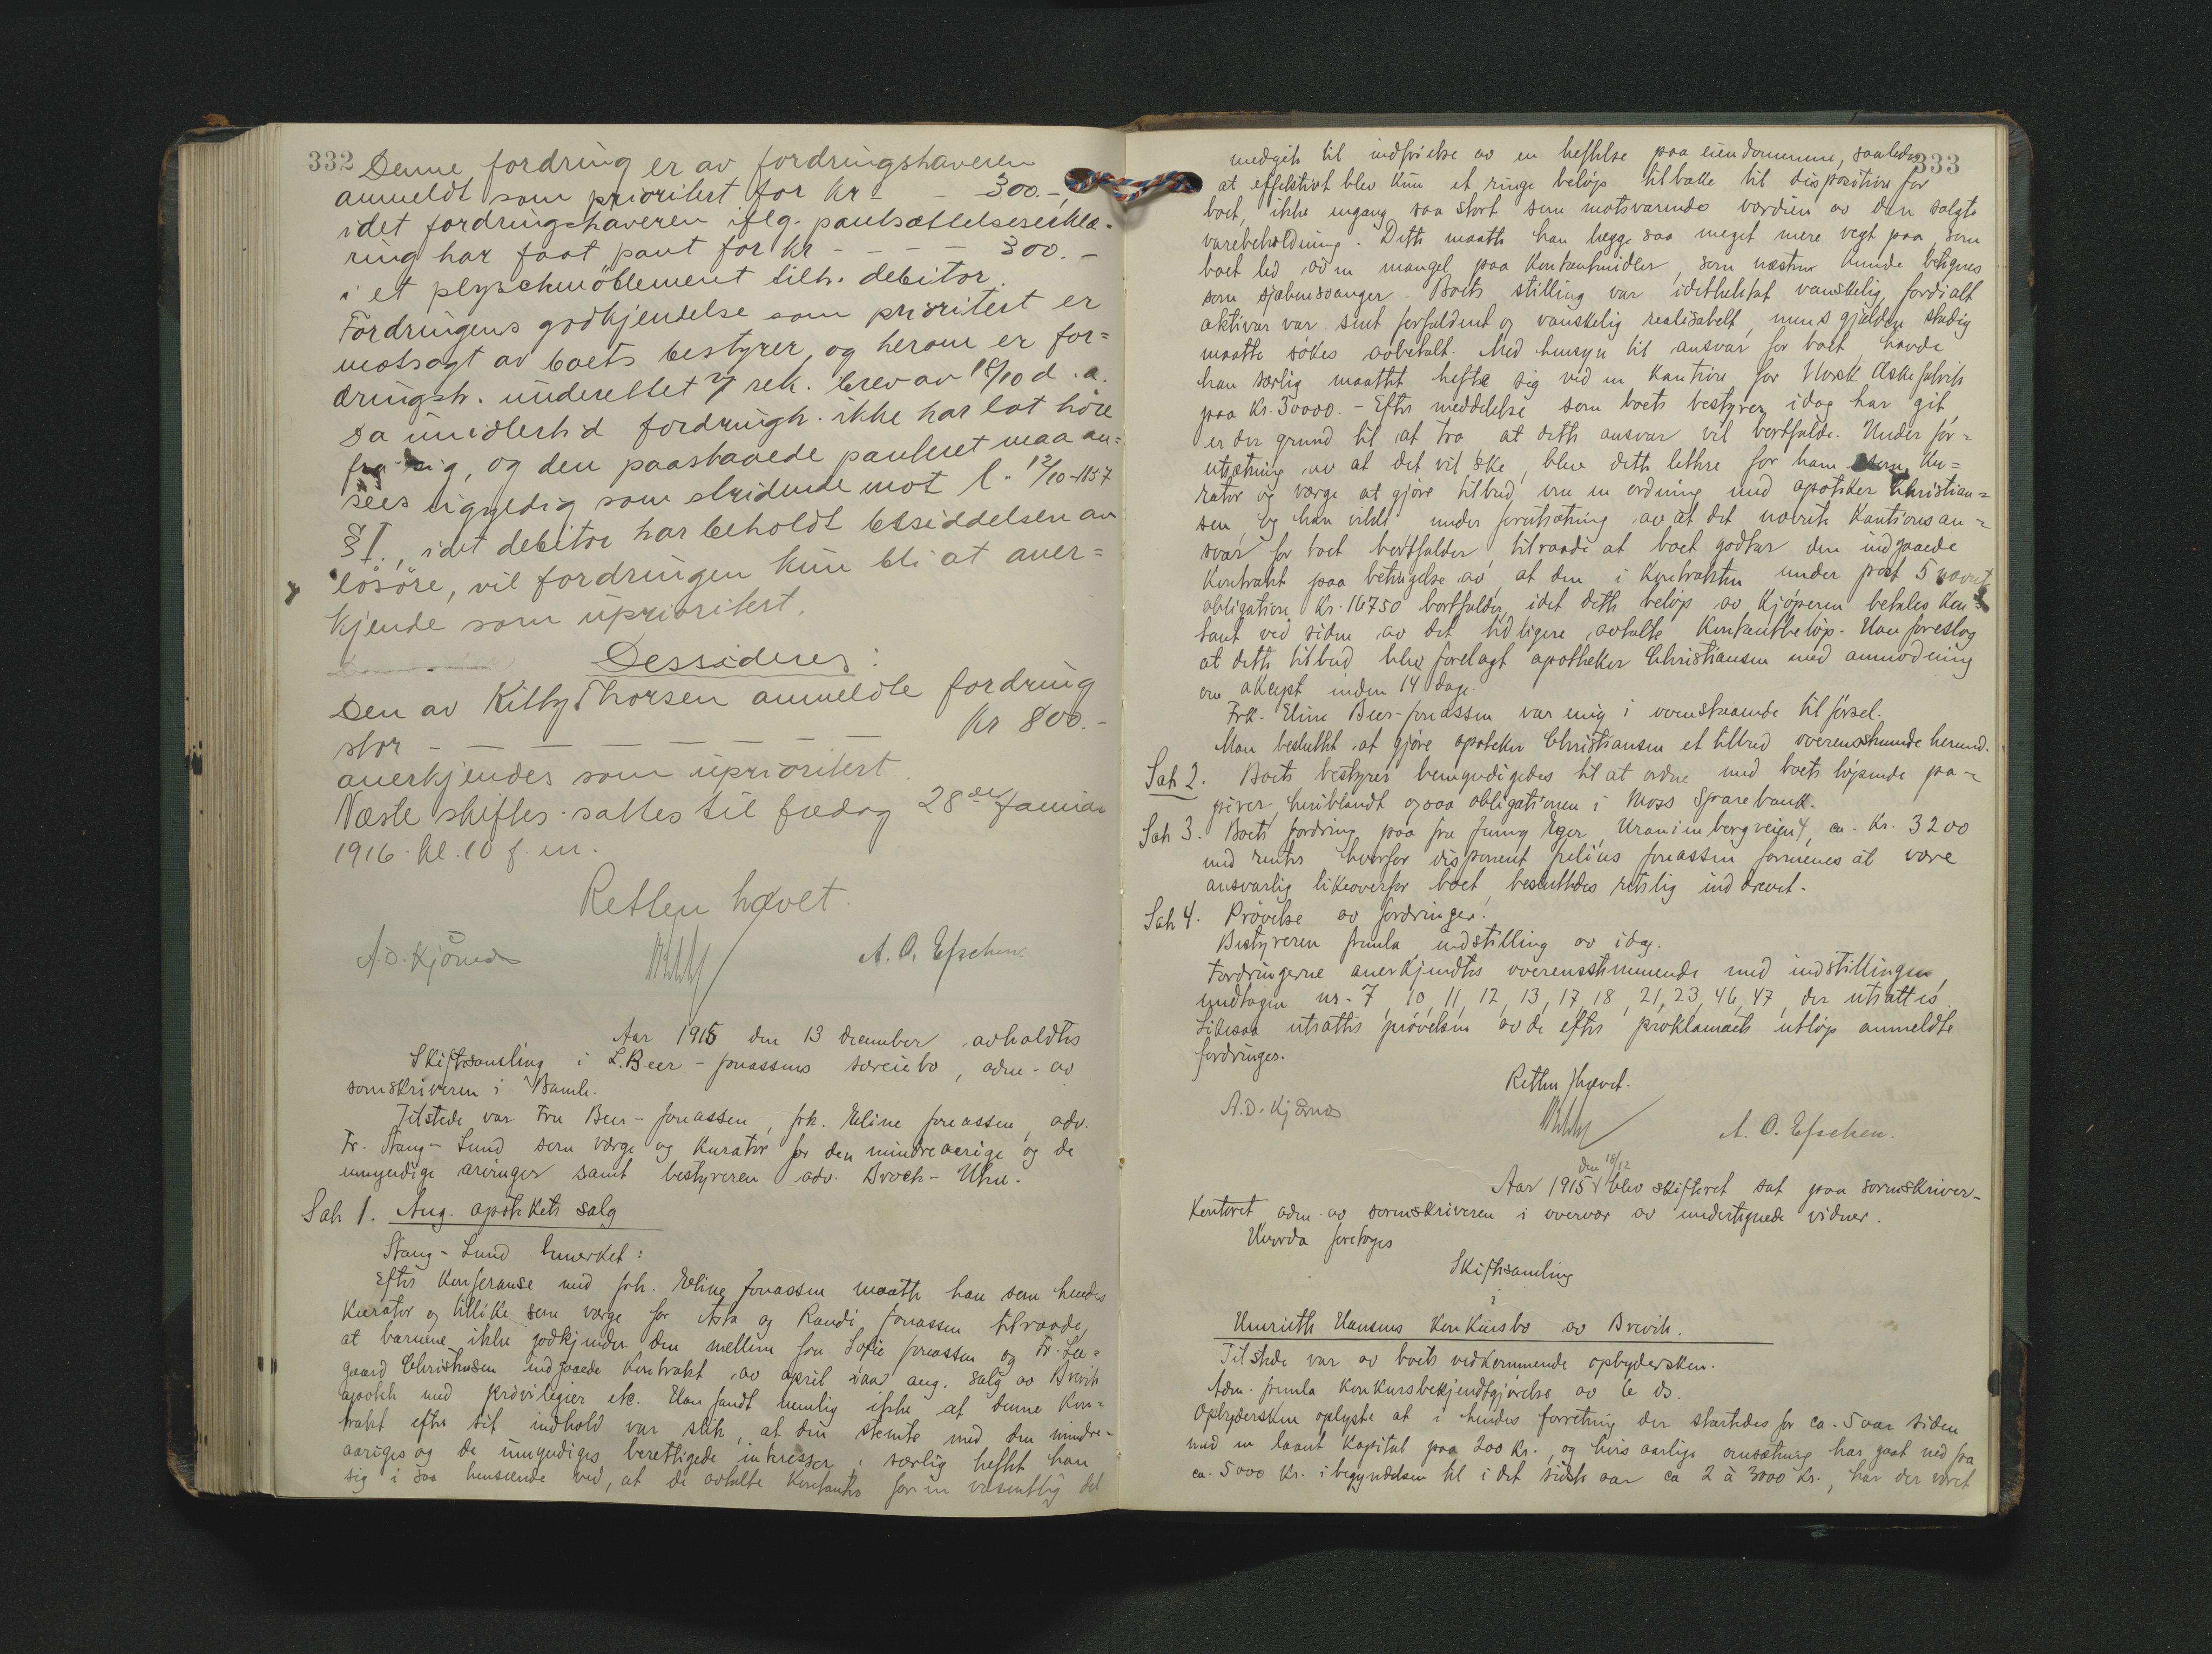 332
Denne fordring er av fordringshaveren
anmeldt som prioritert for kr - - 300.-,
idet fordringshaveren iflg. pantsættelseserklæ-
ring har faat pant for kr - - - - 300.-
i et plyschmöblement tilh. debitor.
Fordringens godkjendelse som prioritert er
motsagt av boets bestyrer, og herom er for=
dringsh. underettet rek. brev av 18/10 d. a.
Da imidlertid fordringh. ikke har lat höre
fra sig, og den paastaaede panteret maa an=
sees ugyldig som stridende mot l. 12/10-1857
§ 1., idet debitor har beholdt besiddelsen av
lösöre, vil fordringen kun bli at aner=
kjende som uprioritert.
Dessideres:
Den av Kitty Thorsen anmeldte fordring
stor - - - - - - - kr 800.-
anerkjendes som uprioritert.
Næste skiftes. sattes til fredag 28de Januar
1916 - kl. 10 f. m.
Retten hævet.
A. D. Kjönnes
A. O. Efschen.
Aar 1915 den 13 december avholdtes
Skiftesamling i L. Beer-Jonassens særeiebo, adm. av
sorenskriveren i Bamle.
Tilstede var Fru Beer-Jonassen, frk. Eline Jonassen, adv.
Fr. Stang-Lund som værge og kurator for den mindreaarige og de
umyndige arvinger samt bestyreren adv. Broch-Utne.
Sak 1. Ang. apotekets salg
Stang-Lund bemerket:
Efter konferanse med frk. Eline Jonassen maatte han som hendes
kurator og tillike som værge for Asta og Randi Jonassen tilraade,
at barnene ikke godkjender den mellem fru Sofie Jonassen og Fr. Lee=
gaard Christiansen indgaaede kontrakt av april iaar ang. salg av Brevik
apotek med privilegier etc. Han fandt nemlig ikke at denne kon=
trakt efter sit indhold var slik, at den stemte med den mindre-
aariges og de umyndiges berettigede interesser, særlig heftet han
sig i saa henseende ved, at de avtalte kontanter for en væsentlig del
333
medgik til indfrielse av en heftelse paa eiendommene, saaledes
at effektivt blev kun et ringe beløp tilbake til disposition for
boet, ikke engang saa stort som motsvarende værdien av den solgte
varebeholdning. Dette maatte han lægge saa meget mere vegt paa som
boet led av en mangel paa kontantmidler, som næsten kunde betegnes
som sjæbnesvanger. Boets stilling var idethelefat vanskelig, fordi alt
aktivar var sent forfaldent og vanskelig realisabelt, mens gjælden stadig
maatte søkes avbetalt. Med hensyn til ansvar for boet havde
han særlig maattet hefte sig ved en kaution for Norsk Æskefabrik
paa kr. 30000. - Efter meddelelse som boets bestyrer idag har git,
er der grund til at tro at dette ansvar vil bortfalde. Under for=
utsætning av at det vil ske, blev dette lettere for ham som ku=
rator og værge at gjøre tilbud om en ordning med apotiker Christian=
sen og han vilde under forutsætning av at det nævnte kautionsan=
svar for boet bortfalder tilraade at boet godtar den indgaaede
kontrakt paa betingelse av at den i kontrakten under post 5 nævnte
obligation kr. 16750 bortfalder, idet dette beløp av kjøperen betales kon=
tant ved siden av det tidligere avtalte kontantbeløp. Han foreslog
at dette tilbud blev forelagt apotheker Christiansen med anmodning
om aksept inden 14 dage.
Frk. Eline Beer-Jonassen var enig i ovenstaaende tilførsel.
Man besluttet at gjøre apoteker Christiansen et tilbud overensstemmende hermed.
Sak 2. Boets bestyrer bemyndigedes til at ordne med boets løpende pa=
pirer, heriblandt ogsaa obligationen i Moss Sparebank.
Sak 3. Boets fordring paa fru Jenny Eger, Uranienborgveien 4, ca. kr. 3200
med renter hvorfor disponent Julius Jonassen formenes at være
ansvarlig likeoverfor boet, besluttedes retslig inddrevet.
Sak 4. Prøvelse av fordringer.
Bestyreren fremla indstilling av idag.
Fordringerne anerkjendtes overensstemmende med indstillingen,
undtagen nr. 7, 10, 11, 12, 13, 17, 18, 21, 23, 46, 47, der utsattes.
Likesaa utsattes prøvelsen av de efter proklamaets utløp anmeldte
fordringer.
Retten hævet.
A. D. Kjönnes
A. O. Efschen.
den 18/12
Aar 1915 blev skifteret sat paa sorenskriver-
kontoret adm. av sorenskriveren i overvær av undertegnede vidner.
Hvorda foretoges
Skiftesamling
i
Henriette Hansens konkursbo av Brevik.
Tilstede var av boets vedkommende opbydersken.
Adm. fremla konkursbekjendtgjørelse av 6 ds.
Opbydersken oplyste at i hendes forretning der startedes for ca. 5 aar siden
med en laant kapital paa 200 kr., og hvis aarlige omsætning har gaat ned fra
ca. 5000 kr. i begyndelsen til i det sidste aar ca 2 à 3000 kr., har der været